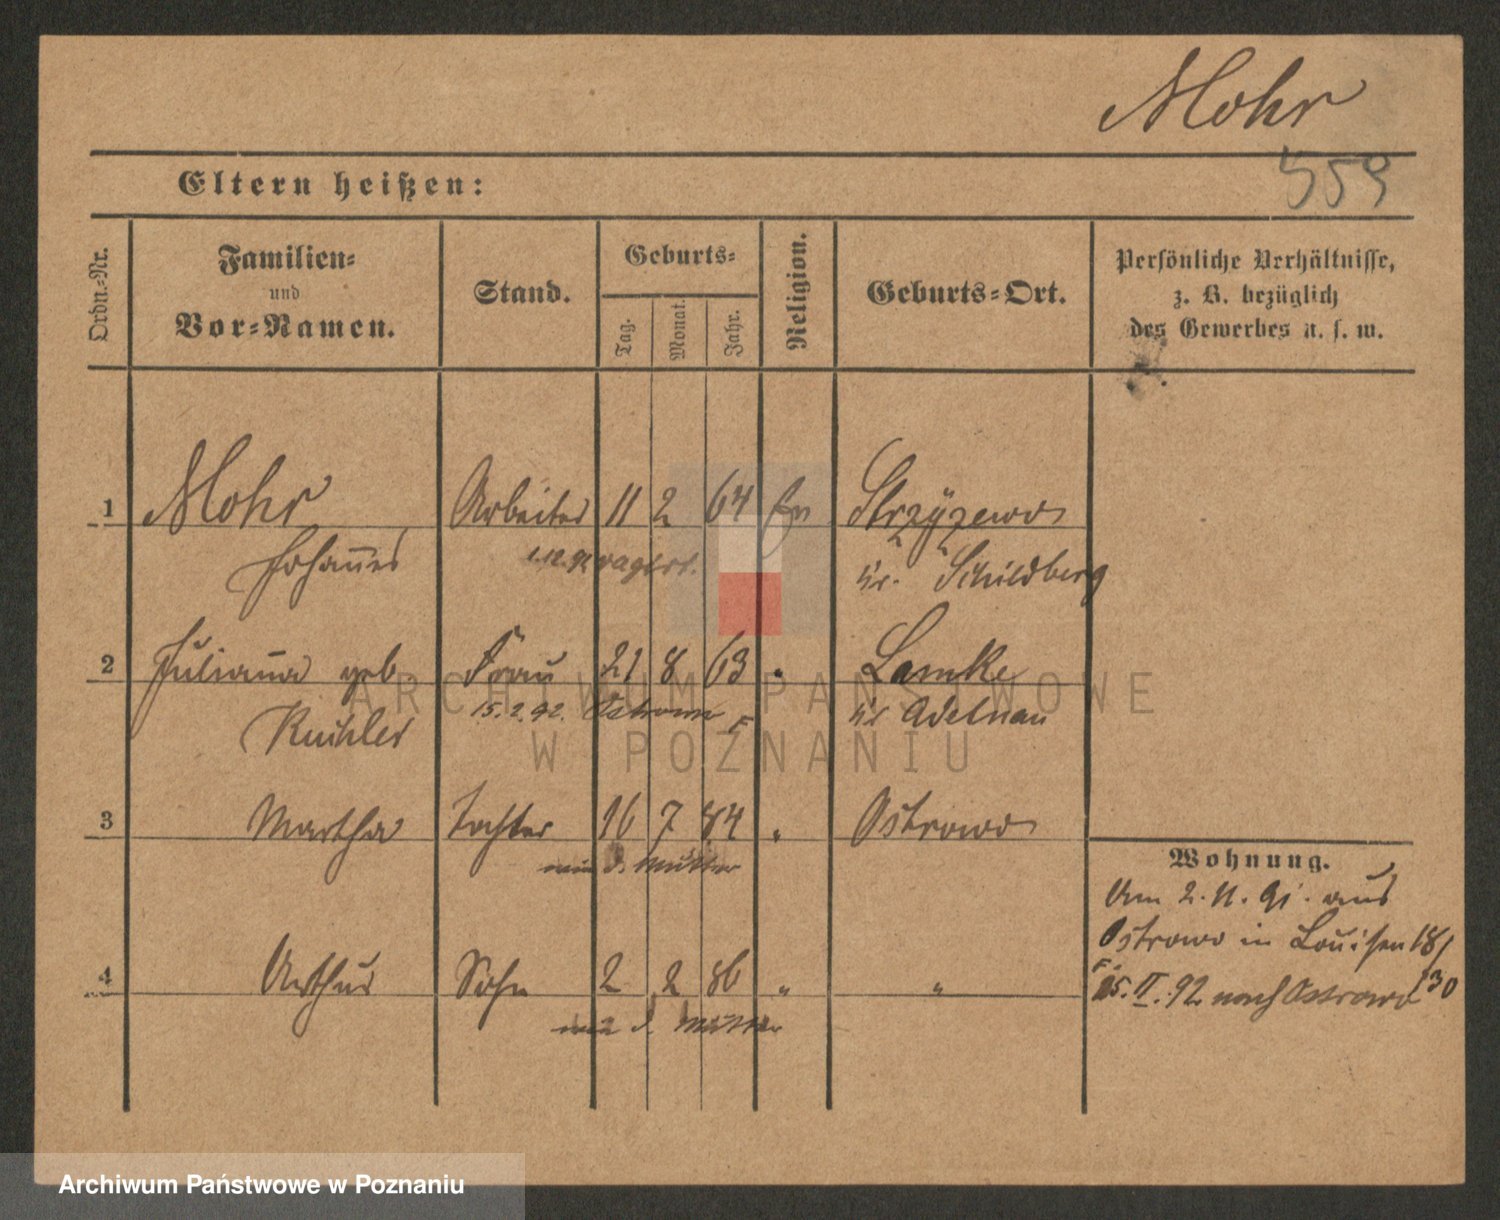 Mohr
559
Eltern heißen:
Ordn.-Nr.
Familien-
und
Vor-Namen.
Stand.
Geburts-
Tag.
Monat.
Jahr.
Religion.
Geburts-Ort.
Persönliche Verhältnisse,
z. B. bezüglich
des Gewerbes u. s. w.
1 Mohr Arbeiter 11 2 64 Ev Strzyżewo
Johannes 1.12.91 Kr. Schildberg
2 Julianna geb Frau 21 8 63 " Lamke
15.2.92. Ostrowo F Kr Adelnau
3 Martha Tochter 16 7 84 " Ostrowo
d. Mutter
Wohnung.
Am 2.11.91. aus
Ostrowo in Louisen 18/
4 Arthur Sohn 2 2 86 " "
F 15.II.92 nach Ostrowo 130
d. Mutter
ARCHIWUM PAŃSTWOWE
W POZNANIU
Archiwum Państwowe w Poznaniu